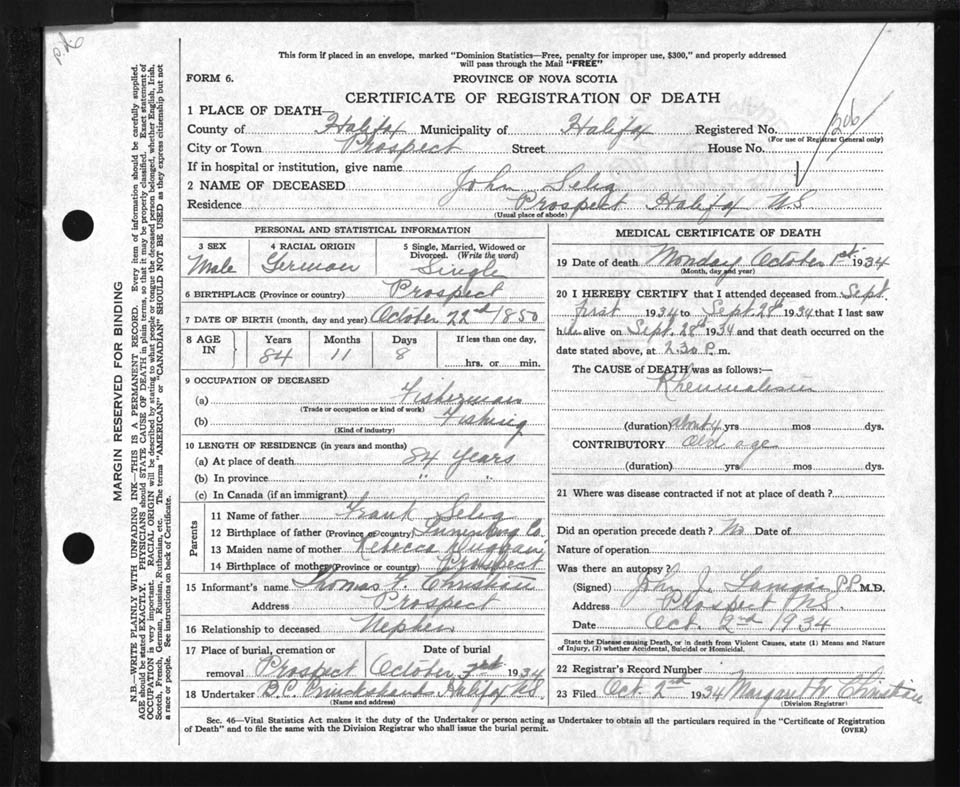 This form if placed in an envelope, marked "Dominion Statistics—Free, penalty for improper use, $300," and properly addressed
will pass through the Mail "FREE"
FORM 6. PROVINCE OF NOVA SCOTIA
CERTIFICATE OF REGISTRATION OF DEATH
1 PLACE OF DEATH—
County of Halifax Municipality of Halifax Registered No.
(For use of Registrar General only)
City or Town Prospect Street House No.
If in hospital or institution, give name
2 NAME OF DECEASED John Selig
Residence Prospect Halifax NS
(Usual place of abode)
PERSONAL AND STATISTICAL INFORMATION
3 SEX 4 RACIAL ORIGIN 5 Single, Married, Widowed or
Divorced. (Write the word)
Male German Single
6 BIRTHPLACE (Province or country) Prospect
7 DATE OF BIRTH (month, day and year) October 22nd 1850
8 AGE IN Years Months Days If less than one day,
84 11 8 hrs. or min.
9 OCCUPATION OF DECEASED
(a) Fisherman
(Trade or occupation or kind of work)
(b) Fishing
(Kind of industry)
10 LENGTH OF RESIDENCE (in years and months)
(a) At place of death 84 years
(b) In province " "
(c) In Canada (if an immigrant)
Parents
11 Name of father Frank Selig
12 Birthplace of father (Province or country) Lunenburg Co.
13 Maiden name of mother Rebecca
14 Birthplace of mother (Province or country) Prospect
15 Informant's name Thomas F. Christian
Address Prospect
16 Relationship to deceased Nephew
17 Place of burial, cremation or Date of burial
removal Prospect October 3rd 1934
18 Undertaker B.C. Cruickshank Halifax NS
(Name and address)
MEDICAL CERTIFICATE OF DEATH
19 Date of death Monday October 1st 1934
(Month, day and year)
20 I HEREBY CERTIFY that I attended deceased from Sept.
first 1934 to Sept. 28th 1934 that I last saw
him alive on Sept. 28th 1934 and that death occurred on the
date stated above, at 2.30 P. m.
The CAUSE of DEATH was as follows:—
Rheumatism
(duration) about 4 yrs mos dys.
CONTRIBUTORY Old age
(duration) yrs mos dys.
21 Where was disease contracted if not at place of death?
Did an operation precede death? No Date of
Nature of operation
Was there an autopsy?
(Signed) John J. P.P. M.D.
Address Prospect NS
Date Oct. 2nd 1934
State the Disease causing Death, or in death from Violent Causes, state (1) Means and Nature
of Injury, (2) whether Accidental, Suicidal or Homicidal.
22 Registrar's Record Number
23 Filed Oct. 2nd 1934 Margaret W Christian
(Division Registrar)
Sec. 46—Vital Statistics Act makes it the duty of the Undertaker or person acting as Undertaker to obtain all the particulars required in the "Certificate of Registration
of Death" and to file the same with the Division Registrar who shall issue the burial permit. (OVER)
MARGIN RESERVED FOR BINDING
N.B.—WRITE PLAINLY WITH UNFADING INK—THIS IS A PERMANENT RECORD. Every item of information should be carefully supplied.
AGE should be stated EXACTLY. PHYSICIANS should STATE CAUSE OF DEATH in plain terms, so that it may be properly classified. Exact statement of
OCCUPATION is very important. RACIAL ORIGIN will be described by stating to what people or tongue the deceased person belonged, whether English, Irish,
Scotch, French, German, Russian, Ruthenian, etc. The terms "AMERICAN" or "CANADIAN" SHOULD NOT BE USED as they express citizenship but not
a race or people. See instructions on back of Certificate.